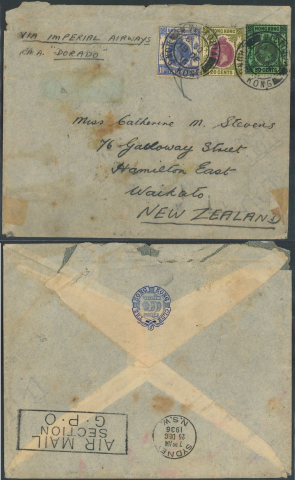 VIA IMPERIAL AIRWAYS
R.M.A. "DORADO"
HONG KONG
HONG KONG
CENTS
CENTS
HONG KONG
Miss Catherine M. Stevens
76 Galloway Street
Hamilton East
Waikato
NEW ZEALAND
AIR MAIL
SECTION
G.P.O
SYDNEY
7 30 AM
25 DEC
1936
N.S.W.